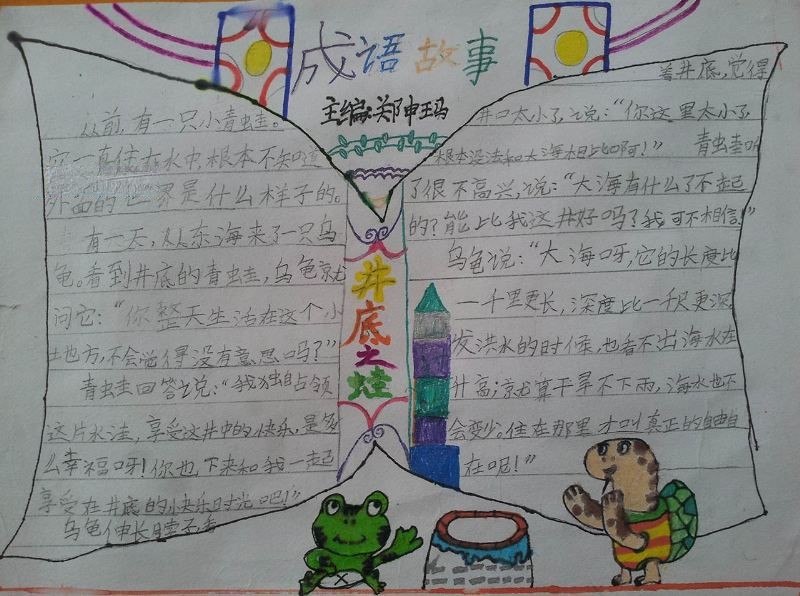 成语故事
主编:郑申玛
井底之蛙
从前,有一只小青蛙。
它一直住在水中,根本不知道
外面的世界是什么样子的。
有一天,从东海来了一只乌
龟。看到井底的青蛙,乌龟就
问它:“你整天生活在这个小
地方,不会觉得没有意思吗?”
青蛙回答说:“我独自占领
这片水洼,享受这井中的快乐,是多
么幸福呀!你也下来和我一起
享受在井底的快乐时光吧!”
乌龟伸长脖子,看
着井底,觉得
井口太小了,说:“你这里太小了
根本没法和大海相比啊!” 青蛙听
了很不高兴,说:“大海有什么了不起
的?能比我这井好吗?我可不相信!”
乌龟说:“大海呀,它的长度比
一千里更长,深度比一千尺更深
发洪水的时候,也看不出海水在
升高;就算干旱不下雨,海水也不
会变少。住在那里才叫真正的自由自
在呢!”